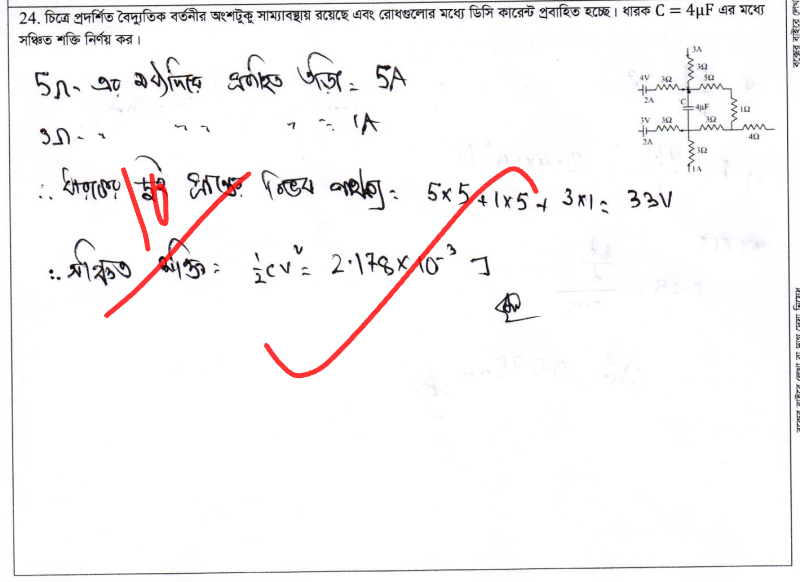 24. চিত্রে প্রদর্শিত বৈদ্যুতিক বর্তনীর অংশটুকু সাম্যাবস্থায় রয়েছে এবং রোধগুলোর মধ্যে ডিসি কারেন্ট প্রবাহিত হচ্ছে। ধারক C = 4μF এর মধ্যে
সঞ্চিত শক্তি নির্ণয় কর।
3A
3Ω
4V 3Ω 5Ω
2A
C 4μF 1Ω
3V 3Ω 3Ω 4Ω
2A
3Ω
1A
5Ω - এর মধ্যদিয়ে প্রবাহিত তড়িৎ = 5A
3Ω - " " " " = 1A
∴ ধারকের দুই প্রান্তের বিভব পার্থক্য = 5×5 + 1×5 + 3×1 = 33V
10
∴ সঞ্চিত শক্তি = ½cv² = 2.178×10⁻³ J